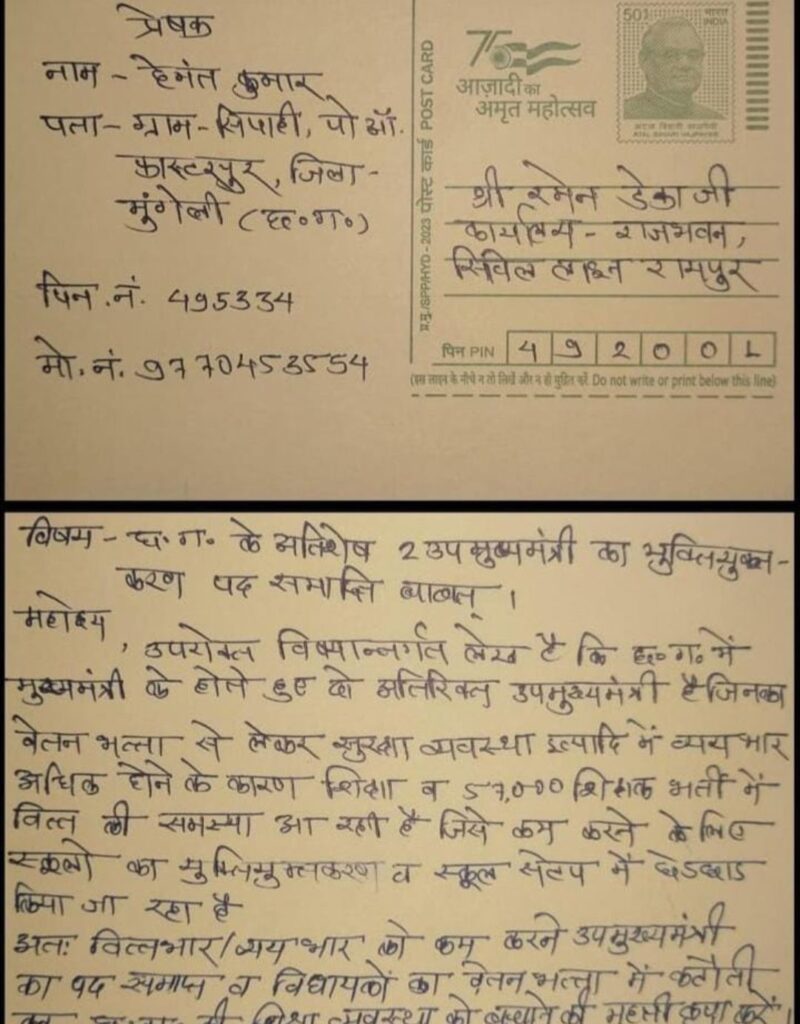 प्रेषक
नाम - हेमंत कुमार
पता - ग्राम - सिपाही, पो ऑ.
कास्टरपुर, जिला -
मुंगेली (छ०ग०)
पिन. नं. 495334
मो. नं. 9770453554
प्र.मु./ISPP/HYD - 2023 पोस्ट कार्ड POST CARD
75
आज़ादी का
अमृत महोत्सव
501
भारत
INDIA
अटल बिहारी वाजपेयी
ATAL BIHARI VAJPAYEE
श्री रमेन डेका जी
कार्यालय - राजभवन,
सिविल लाइन रायपुर
पिन PIN 4 9 2 0 0 1
(इस लाइन के नीचे न तो लिखें और न ही मुद्रित करें Do not write or print below this line)
विषय - छ. ग. के अतिशेष 2 उपमुख्यमंत्री का युक्तियुक्त-
करण पद समाप्ति बाबत् ।
महोदय
, उपरोक्त विषयान्तर्गत लेख है कि छ० ग० में
मुख्यमंत्री के होते हुए दो अतिरिक्त उपमुख्यमंत्री है जिनका
वेतन भत्ता से लेकर सुरक्षा व्यवस्था इत्यादि में व्यय भार
अधिक होने के कारण शिक्षा व 57,000 शिक्षक भर्ती में
वित्त की समस्या आ रही है जिसे कम करने के लिए
स्कूलो का युक्तियुक्तकरण व स्कूल सेटप में छेडछाड
किया जा रहा है
अतः वित्तभार/व्यय भार को कम करने उपमुख्यमंत्री
का पद समाप्त व विधायकों का वेतन भत्ता में कटौती
कर छ. ग. की शिक्षा व्यवस्था को बचाने की महती कृपा करें।